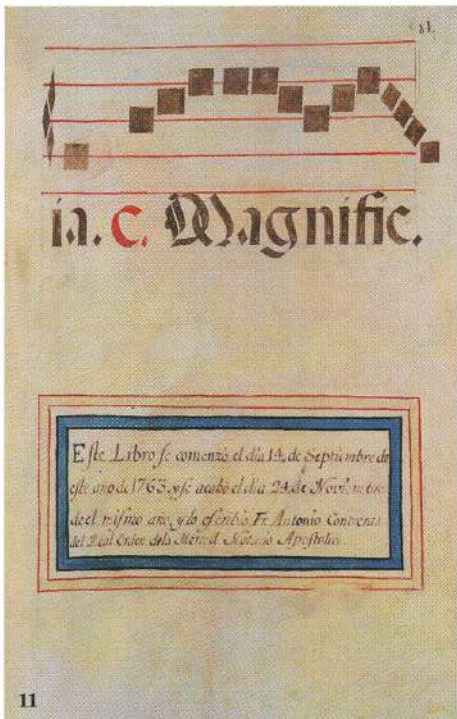 81.
ia. C. Magnific.
Este Libro se comenzó el dia 14, de Septiembre de
este año de 1763 y se acabó el dia 24 de Noviembre
de el mismo año, y lo escribió Fr. Antonio Contreras
del Real Orden de la Merced Notario Apostolico.
11